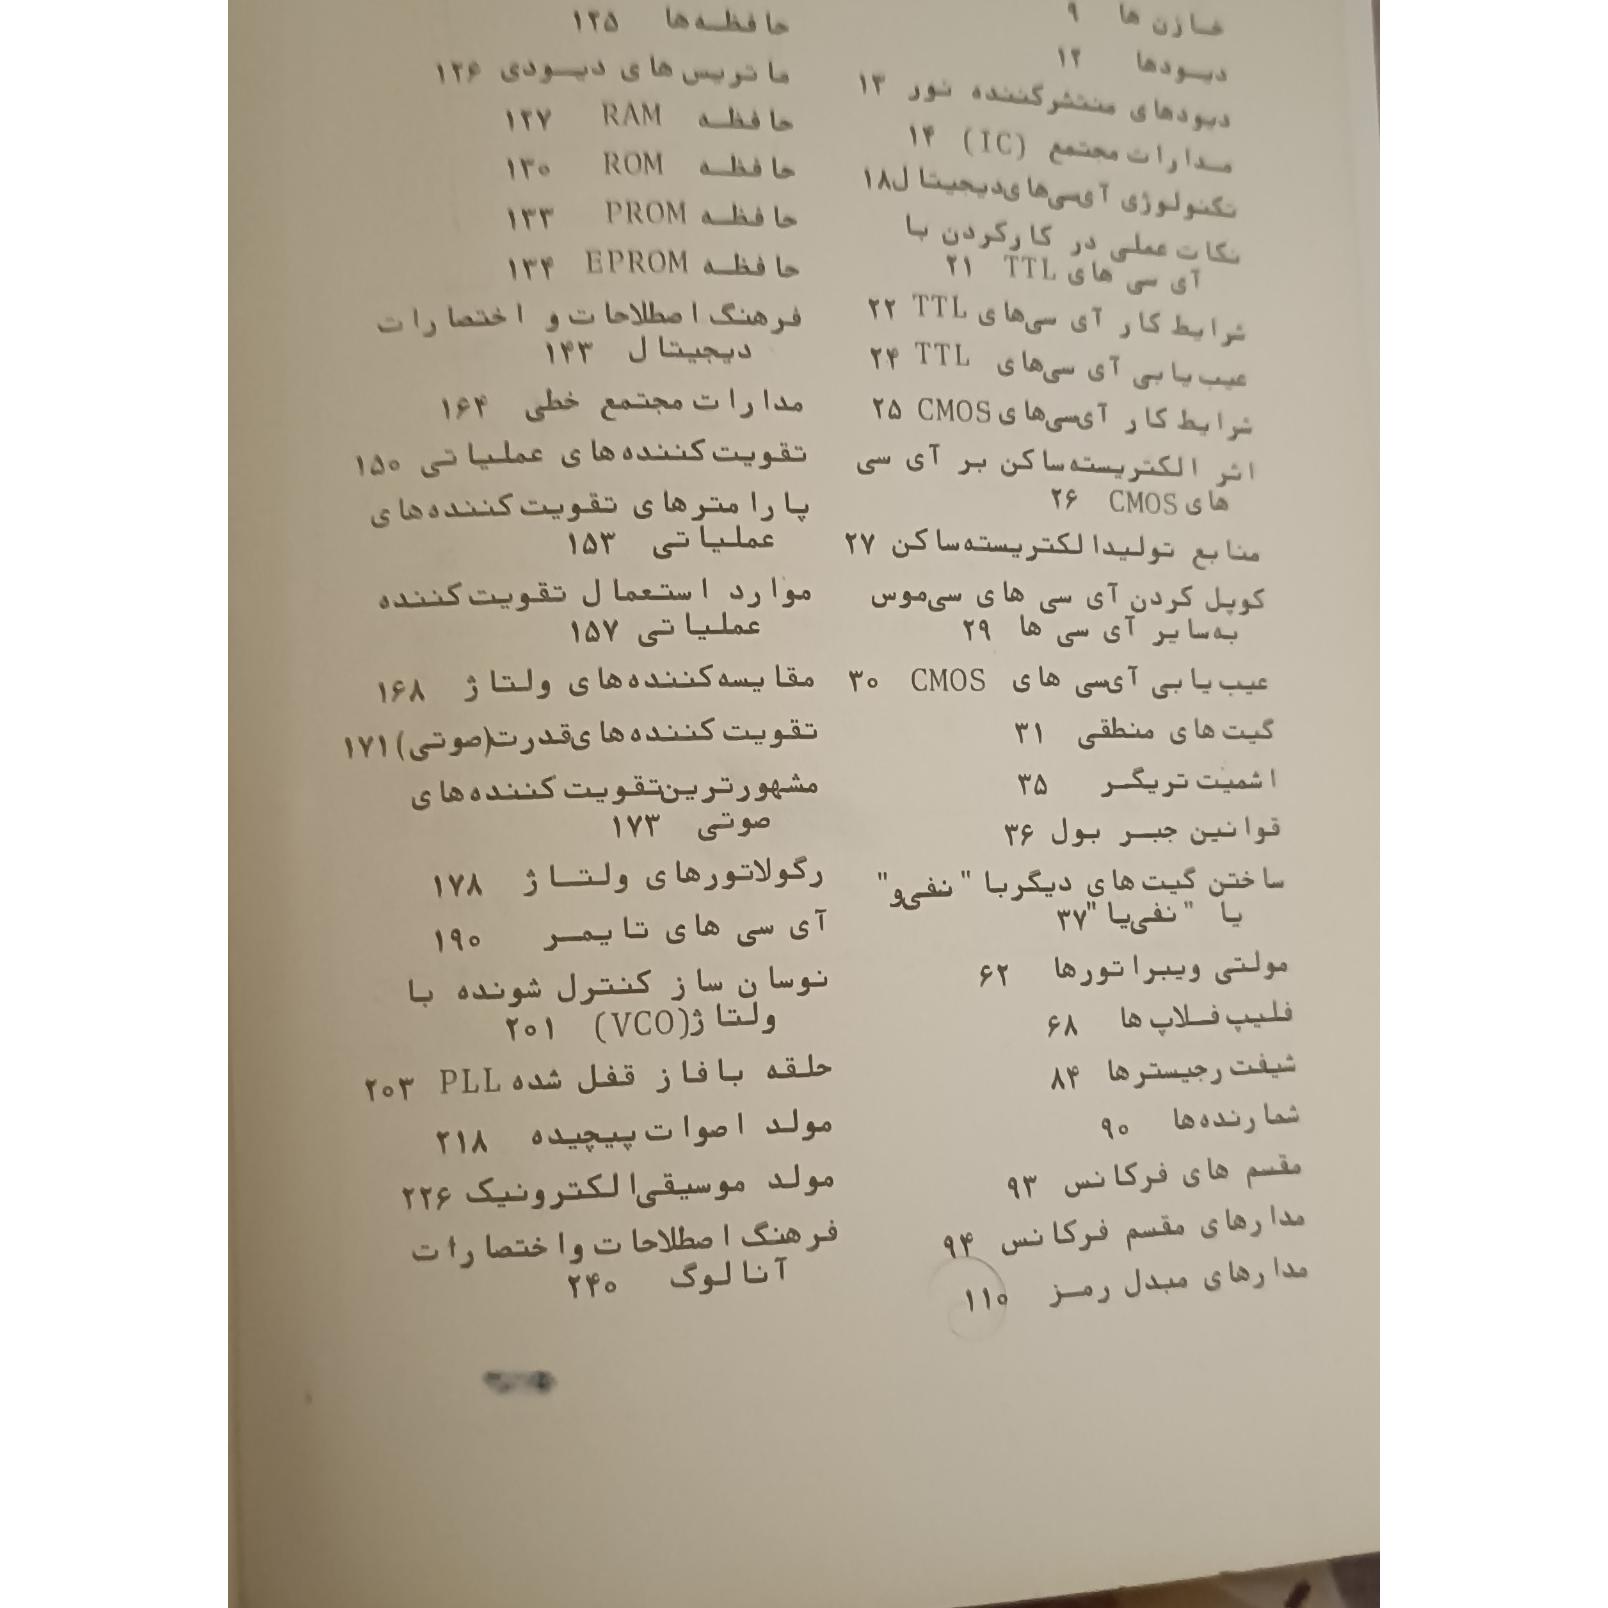 خازن ها ۹
دیودها ۱۲
دیودهای منتشرکننده نور ۱۳
مدارات مجتمع (IC) ۱۴
تکنولوژی آی‌سی‌های‌دیجیتال ۱۸
نکات عملی در کارکردن با
آی سی های TTL ۲۱
شرایط کار آی سی‌های TTL ۲۲
عیب‌یابی آی سی‌های TTL ۲۴
شرایط کار آی‌سی‌های CMOS ۲۵
اثر الکتریسته‌ساکن بر آی سی
های CMOS ۲۶
منابع تولیدالکتریسته‌ساکن ۲۷
کوپل کردن آی سی های سی‌موس
به‌سایر آی سی ها ۲۹
عیب‌یابی آی‌سی های CMOS ۳۰
گیت‌های منطقی ۳۱
اشمیت‌تریگر ۳۵
قوانین جبر بول ۳۶
ساختن گیت‌های دیگربا "نفی‌و"
یا "نفی‌یا" ۳۷
مولتی ویبراتورها ۶۲
فلیپ‌فلاپ‌ها ۶۸
شیفت‌رجیسترها ۸۴
شمارنده‌ها ۹۰
مقسم های فرکانس ۹۳
مدارهای مقسم فرکانس ۹۴
مدارهای مبدل رمز ۱۱۰
حافظه‌ها ۱۲۵
ماتریس‌های دیودی ۱۲۶
حافظه RAM ۱۲۷
حافظه ROM ۱۳۰
حافظه PROM ۱۳۳
حافظه EPROM ۱۳۴
فرهنگ اصطلاحات و اختصارات
دیجیتال ۱۴۳
مدارات مجتمع خطی ۱۶۴
تقویت‌کننده‌های عملیاتی ۱۵۰
پارامترهای تقویت‌کننده‌های
عملیاتی ۱۵۳
موارد استعمال تقویت‌کننده
عملیاتی ۱۵۷
مقایسه‌کننده‌های ولتاژ ۱۶۸
تقویت‌کننده‌های‌قدرت(صوتی) ۱۷۱
مشهورترین‌تقویت‌کننده‌های
صوتی ۱۷۳
رگولاتورهای ولتاژ ۱۷۸
آی سی های تایمر ۱۹۰
نوسان ساز کنترل شونده با
ولتاژ(VCO) ۲۰۱
حلقه بافاز قفل شده PLL ۲۰۳
مولد اصوات‌پیچیده ۲۱۸
مولد موسیقی‌الکترونیک ۲۲۶
فرهنگ اصطلاحات واختصارات
آنالوگ ۲۴۰